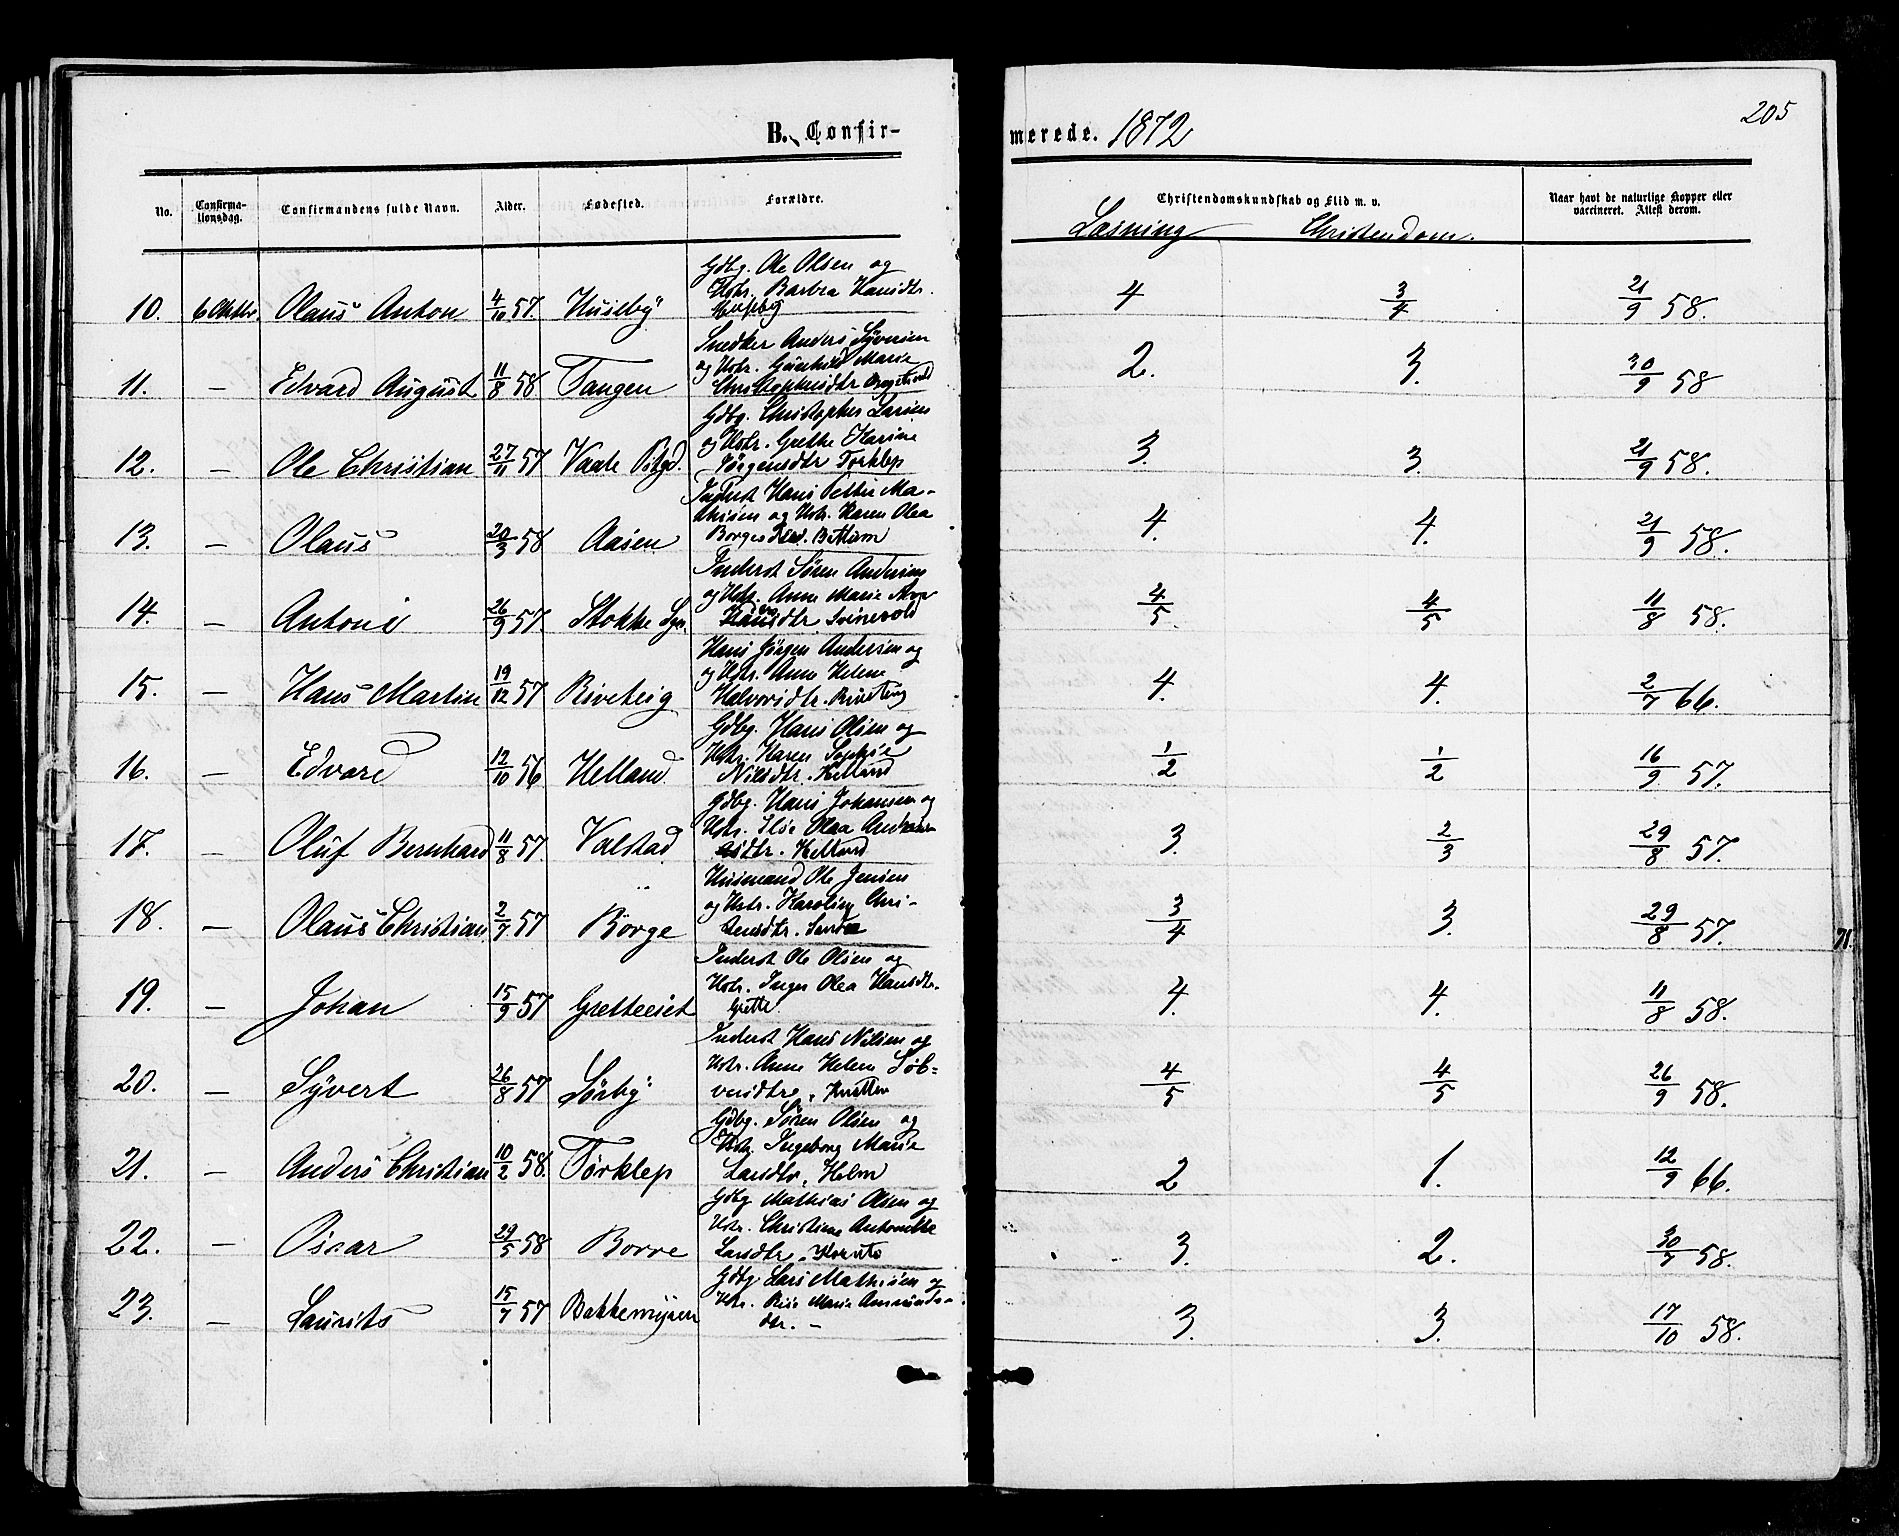 205
B. Confir- merede. 1872
No. Confirma-tionsdag. Confirmandens fulde Navn. Alder. Fødested. Forældre. Christendomskundskab og Flid m. v. Naar havt de naturlige Kopper eller vaccineret. Attest derom.
Læsning Christendom.
Gdbg. Ole Olsen og
Hstr. Barbra Hansdtr.
10. 6 Oktbr. Olaus Anton 4/10 57. Huseby Huseby 4 3/4 21/9 58.
Snedker Anders Syversen
og Hstr. Gunhild Marie
11. — Edvard August 11/8 58. Tangen Christophersdtr 2. 3. 30/9 58
Gdbg. Christopher Larsen
og Hstr. Grethe Karine
12. — Ole Christian 27/11 57 Vaale Pstgd. Jørgensdtr Torklep 3. 3. 21/9 58.
Inderst Hans Petter Ma-
thisen og Hstr. Karen Olea
13. — Olaus 20/3 58 Aasen Borgesdtr. 4. 4. 21/9 58.
Inderst Søren Andersen
og Hstr. Anne Marie
14. — Antoni 26/9 57. Stokke Sgn. Hansdtr. Svinevold 4/5 4/5 11/8 58.
Hans Jörgen Andersen og
og Hstr. Anne Helene
15. — Hans Martin 19/12 57 Riveteig Halvorsdtr. 4. 4. 2/7 66.
Gdbg. Hans Olsen og
Hstr. Karen Sophie
16. — Edvard 12/10 56 Helland Nilsdtr. Helland 1/2 1/2 16/9 57.
Gdbg. Hans Johansen og
Hstr. Ilse Olea
17. — Oluf Bernhard 11/8 57. Valstad Helland 3. 2/3 29/8 57.
Husmand Ole Jensen
og Hstr. Karoline Chri-
18. — Olaus Christian 2/7 57 Börge stensdtr. Sande 3/4 3. 29/8 57.
71.
Inderst Ole Olsen og
Hstr. Inger Olea Hansdtr.
19. — Johan 15/9 57 Gretteeiet Grette 4. 4. 11/8 58.
Inderst Hans Nilsen og
Hstr. Anne Helene Söb-
20. — Syvert 26/8 57 Sörby 4/5 4/5 26/9 58.
Gdbg. Søren Olsen og
Hstr. Ingeborg Marie
21. — Anders Christian 10/2 58. Tørklep Larsdtr. Holm 2 1. 12/9 66.
Gdbg Mathias Olsen og
Hstr. Christine Antonette
22. — Oscar 29/5 58 Borre Larsdtr. 3. 2. 30/7 58.
Gdbg Lars Mathisen og
Hstr. Marie Amunds-
23. — Laurits 15/7 57 Bakkemyren dtr. — 3. 3. 17/10 58.